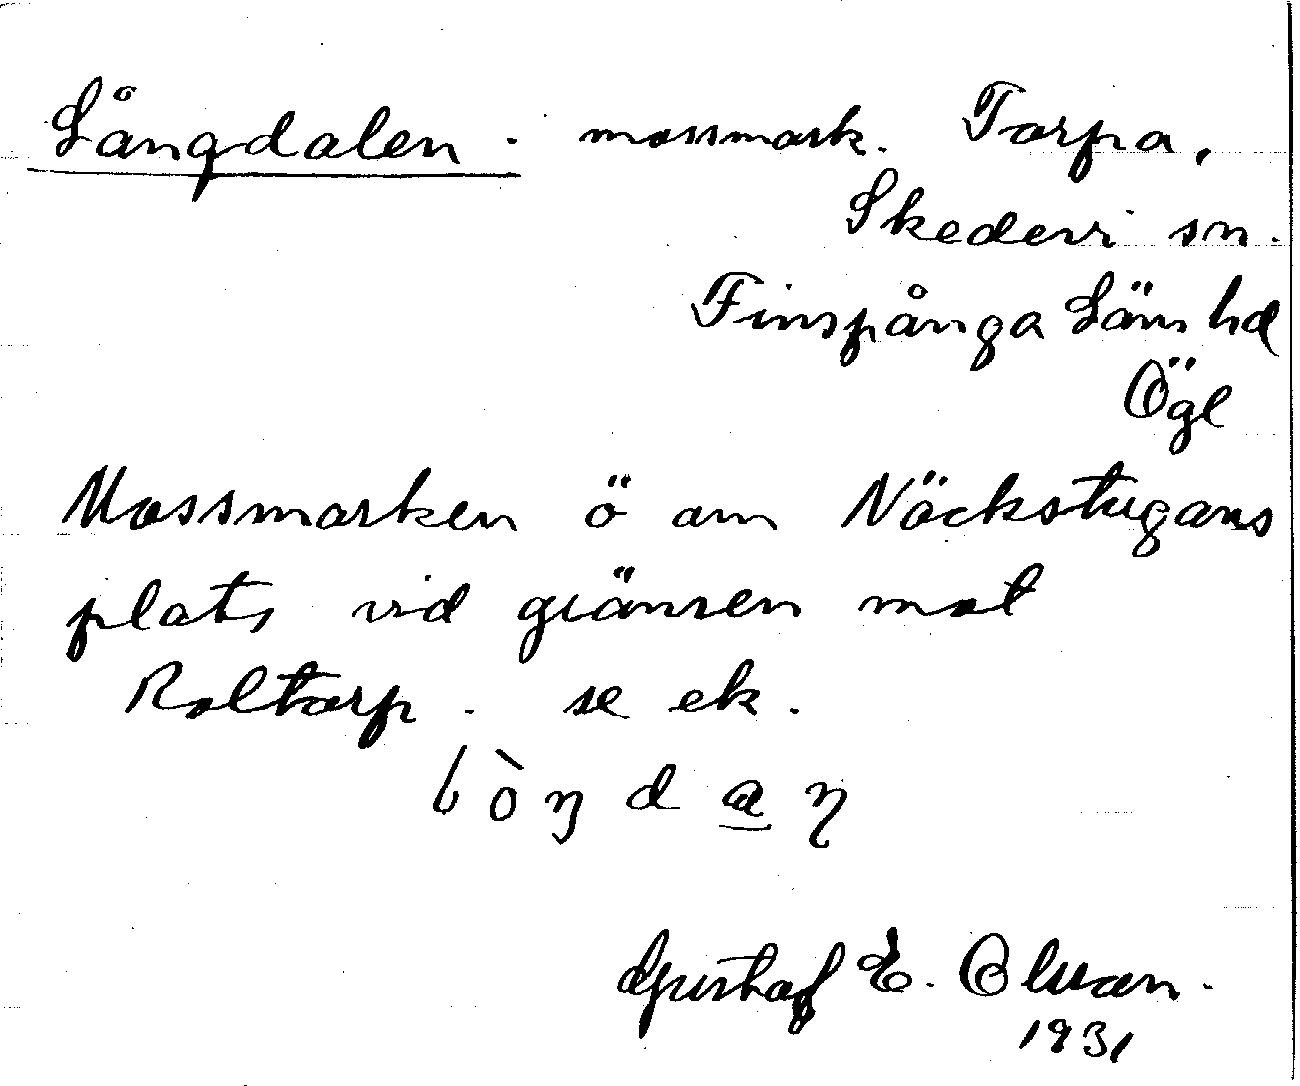 Långdalen. mossmark. Torpa,
Skedevi sn.
Finspånga Läns hd
Ögl
Mossmarken ö om Näckstugans
plats vid gränsen mot
Roltorp. se ek.
Gustaf E. Olsson.
1931